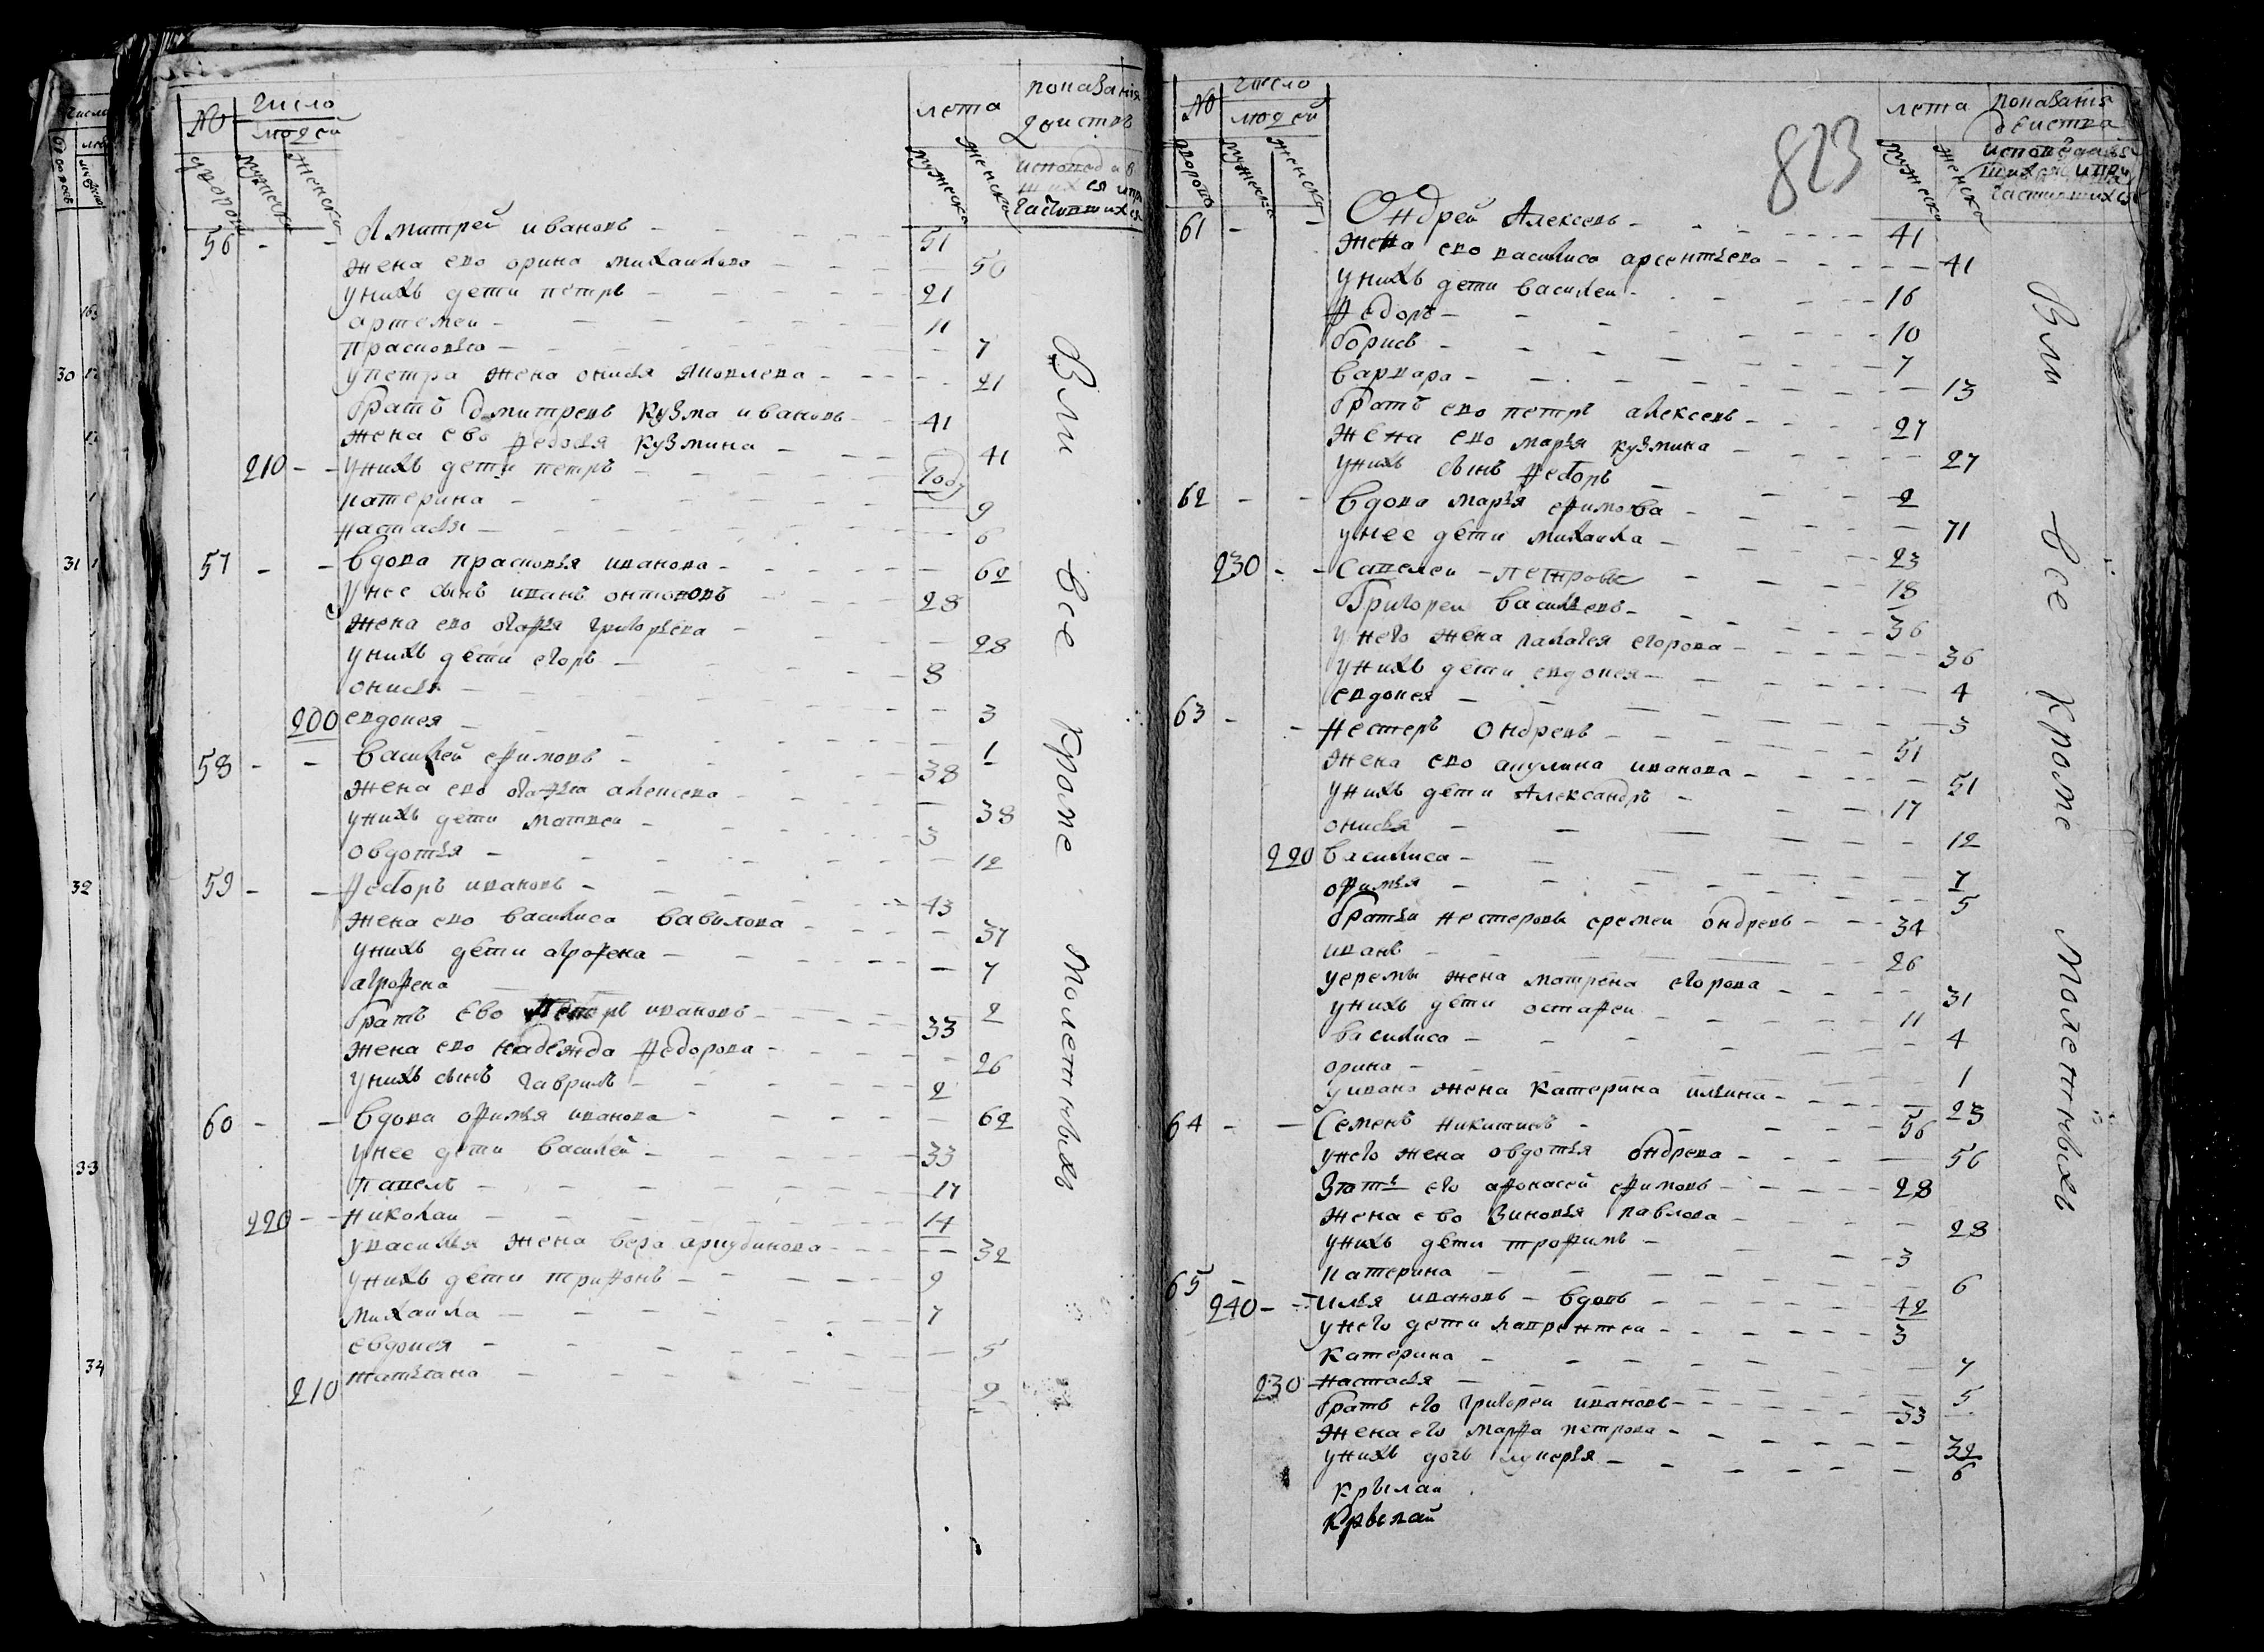 № число лета показания
людей действъ
дворовъ мужеска женска мужеска женска исповедав
шихся и при
частившихся
56 - - Дмитрей ивановъ - 51
жена ево орина михаилова - 50
у нихъ дети петръ - 21
артемеи - 11
прасковья - 7
у петра жена онисья яковлева - 21
братъ дмитревъ кузма ивановъ - 41
жена ево федосья кузмина - 41
210 - - у нихъ дети петръ - году
катерина - 9
настасья - 6
57 - - вдова прасковья иванова - 62
у нее сынъ иванъ онтоновъ - 28
жена ево огафья григорьева - 28
у нихъ дети егоръ - 8
онисья - 3
200 евдокея - 1
58 - - василей ефимовъ - 38
жена ево огафья алексеева - 38
у нихъ дети матвеи - 3
овдотья - 12
59 - - федоръ ивановъ - 43
жена ево василиса вавилова - 37
у нихъ дети агрофена - 7
агрофена - 2
братъ ево петръ ивановъ - 33
жена ево надежда федорова - 26
у нихъ сынъ гаврилъ - 2
60 - - вдова офимья иванова - 62
у нее дети василей - 33
павелъ - 17
220 - - николаи - 14
у василья жена вера - 32
у нихъ дети трифонъ - 9
михаила - 7
евдокея - 5
210 татьяна - 2
Вли все кроме молетныхъ
823
№ число лета показания
людей действа
дворовъ мужеска женска мужеска женска исповедавъ
шихся и при
частившихся
61 - - Ондрей Алексеевъ - 41
жена ево василиса арсентьева - 41
у нихъ дети василеи - 16
федоръ - 10
борисъ - 7
варвара - 13
братъ ево петръ алексеевъ - 27
жена ево марья кузмина - 27
у нихъ сынъ федоръ - 2
62 - - вдова марья ефимова - 71
у нее дети михаила - 23
230 - - савелеи - петровы - 18
григореи васильевъ - 36
у него жена палагея егорова - 36
у нихъ дети евдокея - 4
евдокея - 3
63 - - нестеръ ондреевъ - 51
жена ево акулина иванова - 51
у нихъ дети Александръ - 17
онисья - 12
220 василиса - 7
офимья - 5
братья нестеровы еремеи ондреевъ - 34
иванъ - 26
у еремы жена матрена егорова - 31
у нихъ дети остафеи - 11
василиса - 4
орина - 1
у ивана жена катерина ильина - 23
64 - - Семенъ никитинъ - 56
у него жена овдотья ондреева - 56
Зять его афонасей ефимовъ - 28
жена ево зиновья павлова - 28
у нихъ дети трофимъ - 3
катерина - 6
65 - 240 - - илья ивановъ - вдовъ - 42
у него дети лаврентеи - 3
катерина - 7
230 настасья - 5
братъ его григореи ивановъ - 33
жена его марфа петрова - 32
у нихъ дочь лукерья - 6
крылаи
крылай
Вли все кроме молетныхъ